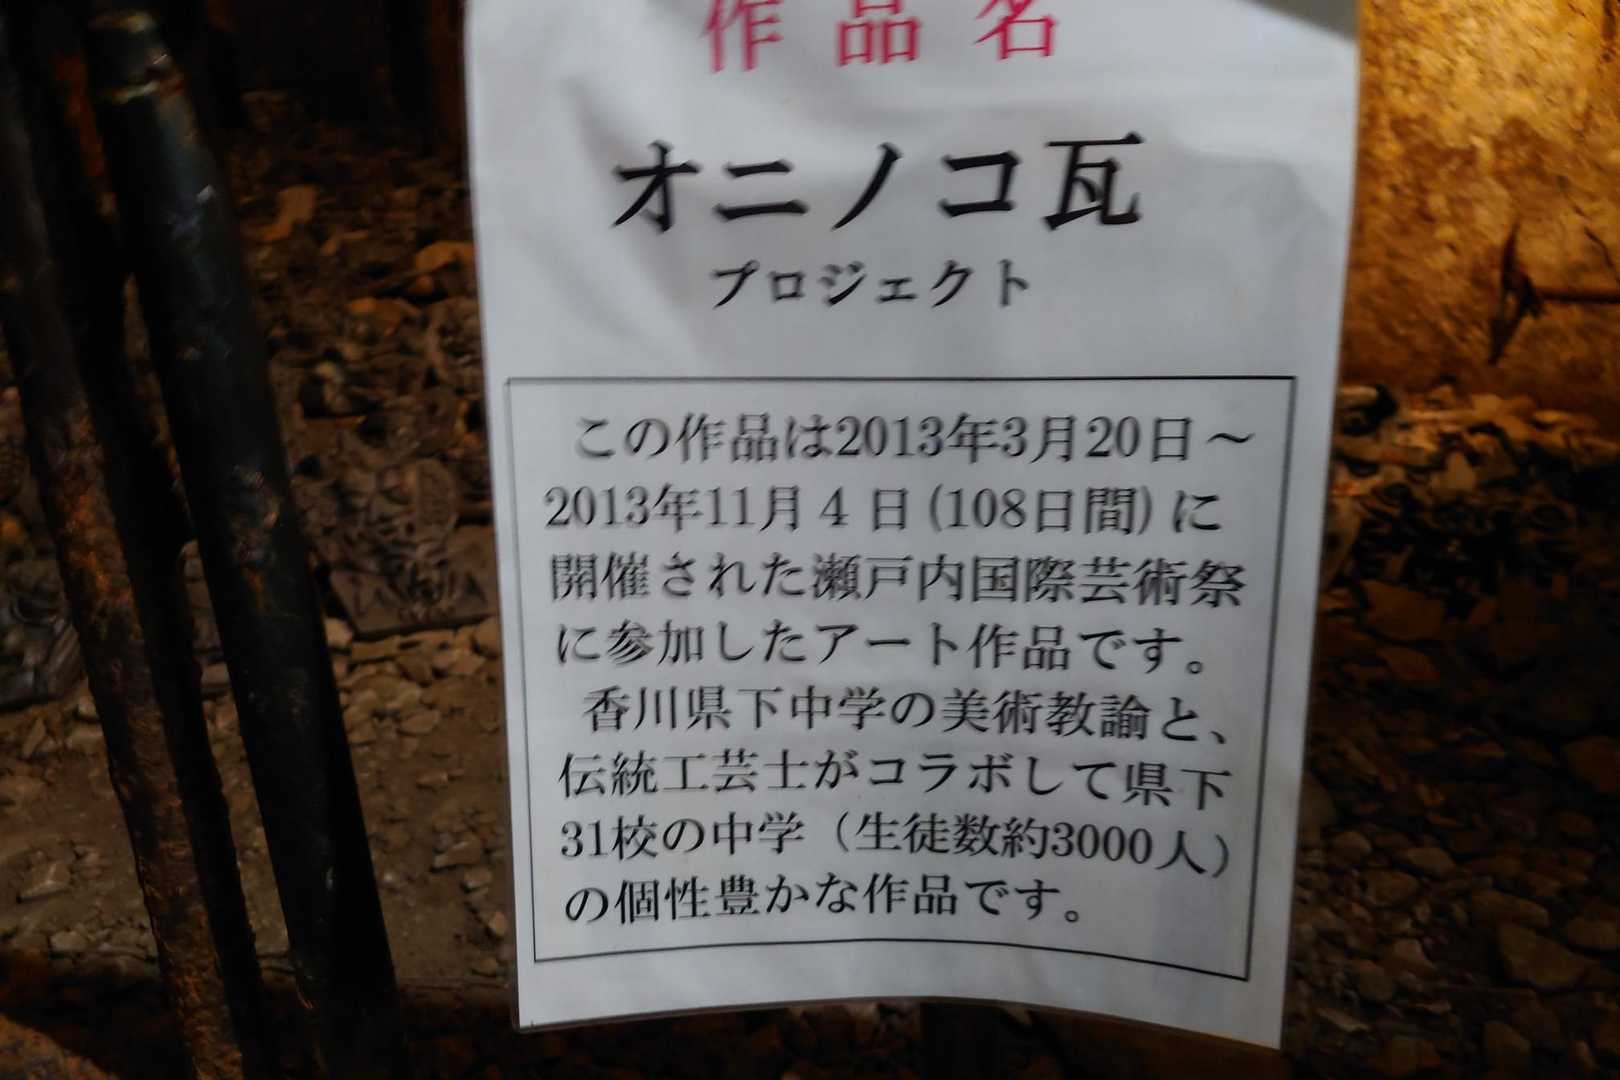 作品名
オニノコ瓦
プロジェクト
この作品は2013年3月20日～
2013年11月4日(108日間)に
開催された瀬戸内国際芸術祭
に参加したアート作品です。
香川県下中学の美術教諭と、
伝統工芸士がコラボして県下
31校の中学（生徒数約3000人）
の個性豊かな作品です。